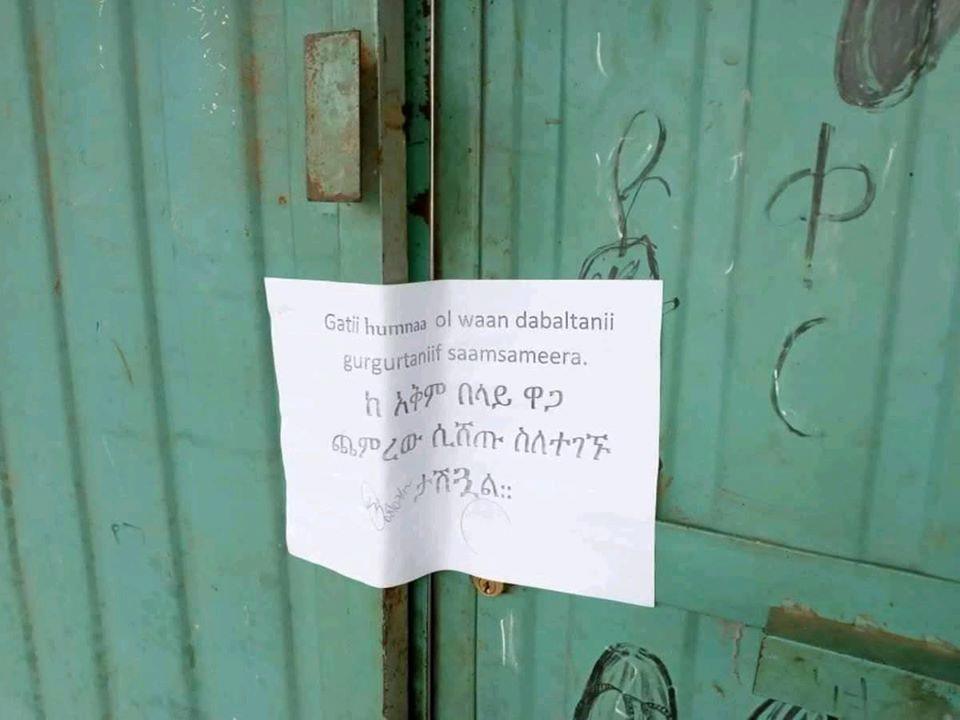 Gatii humnaa ol waan dabaltanii
gurgurtaniif saamsameera.
ከ አቅም በላይ ዋጋ
ጨምረው ሲሸጡ ስለተገኙ
ታሽጓል።